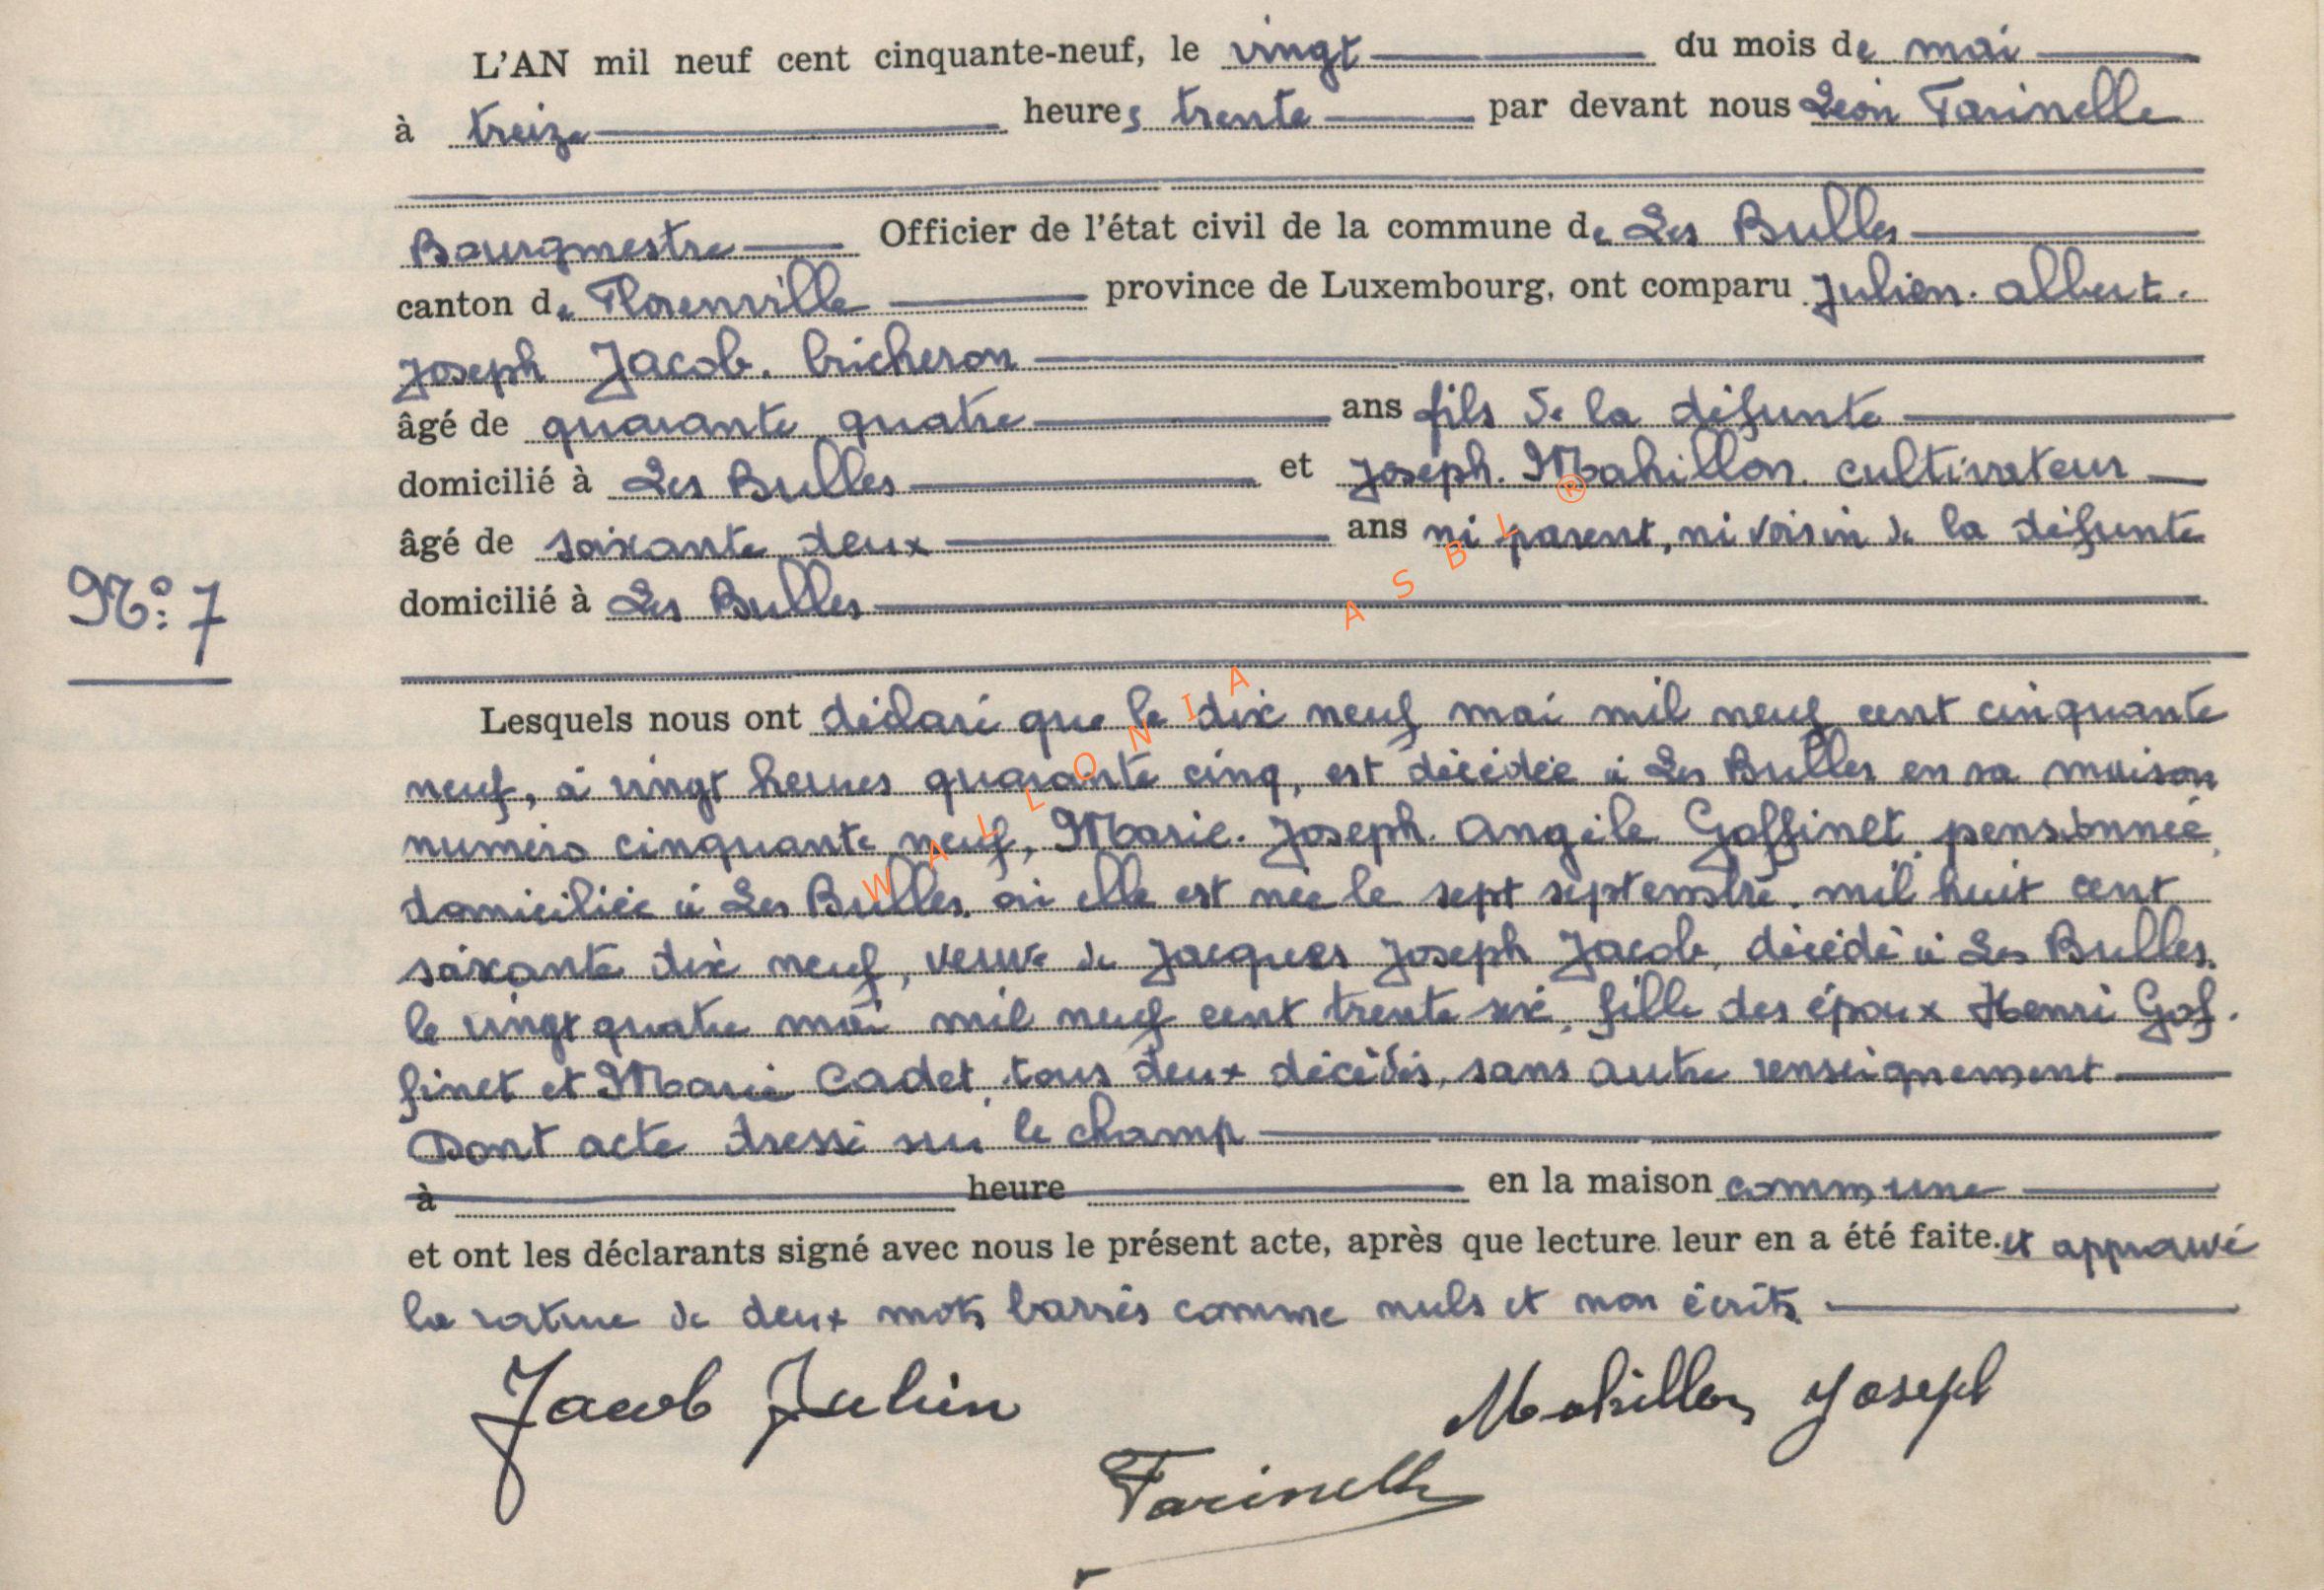 L'AN mil neuf cent cinquante-neuf, le vingt du mois de mai
à treize heures trente par devant nous Léon Farinelle
Bourgmestre Officier de l'état civil de la commune de Les Bulles
canton de Florenville province de Luxembourg, ont comparu Julien. Albert.
Joseph Jacob. bricheron
âgé de quarante quatre ans fils de la défunte
domicilié à Les Bulles et Joseph. Mahillon. cultivateur
âgé de soixante deux ans ni parent, ni voisin de la défunte
N°: 7
domicilié à Les Bulles
Lesquels nous ont déclaré que le dix neuf mai mil neuf cent cinquante
neuf, à vingt heures quarante cinq, est décédée à Les Bulles en sa maison
numéro cinquante neuf, Marie. Joseph. Angèle Goffinet, pensionnée,
domiciliée à Les Bulles. où elle est née le sept septembre. mil huit cent
soixante dix neuf, veuve de Jacques Joseph Jacob, décédé à Les Bulles.
le vingt quatre mai mil neuf cent trente six, fille des époux Henri Gof.
finet et Marie Cadet, tous deux décédés, sans autre renseignement
Dont acte dressé sur le champ
à heure en la maison commune
et ont les déclarants signé avec nous le présent acte, après que lecture leur en a été faite. et approuvé
la rature de deux mots barrés comme nuls et non écrits.
Jacob Julien Mahillon Joseph
Farinelle
WALLONIA ASBL ®